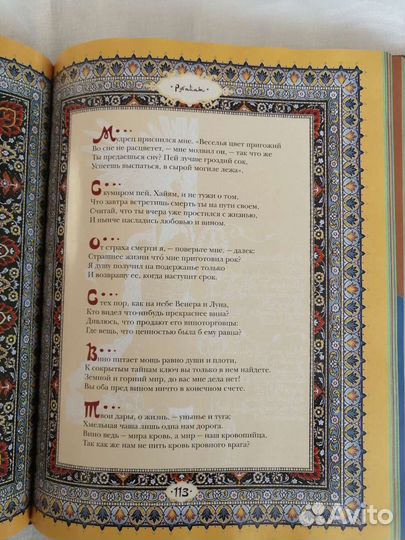 • Рубаи •
Мудрец приснился мне. «Веселья цвет пригожий
Во сне не расцветет, – мне молвил он, – так что же
Ты предаешься сну? Пей лучше гроздий сок,
Успеешь выспаться, в сырой могиле лежа».
С кумиром пей, Хайям, и не тужи о том,
Что завтра встретишь смерть ты на пути своем,
Считай, что ты вчера уже простился с жизнью,
И нынче насладись любовью и вином.
От страха смерти я, – поверьте мне, – далек:
Страшнее жизни что́ мне приготовил рок?
Я душу получил на подержанье только
И возвращу ее, когда наступит срок.
С тех пор, как на небе Венера и Луна,
Кто видел что-нибудь прекраснее вина?
Дивлюсь, что продают его виноторговцы:
Где вещь, что ценностью была б ему равна?
Вино питает мощь равно души и плоти,
К сокрытым тайнам ключ вы только в нем найдете.
Земной и горний мир, до вас мне дела нет!
Вы оба пред вином ничто в конечном счете.
Твои дары, о жизнь, – унынье и туга;
Хмельная чаша лишь одна нам дорога.
Вино ведь – мира кровь, а мир – наш кровопийца,
Так как же нам не пить кровь кровного врага?
113
Avito